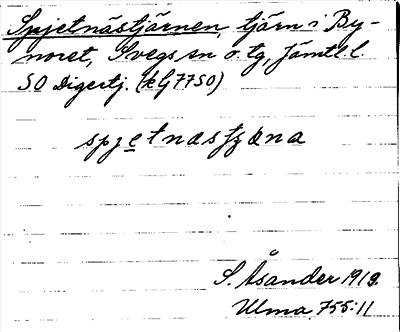 Spjetnästjärnen, tjärn i By-
noret, Svegs sn o. tg, Jämtl. l
SO Digertj. (kG 7750)
spjetnastjæna
S. Åsander 1919.
Ulma 755:11